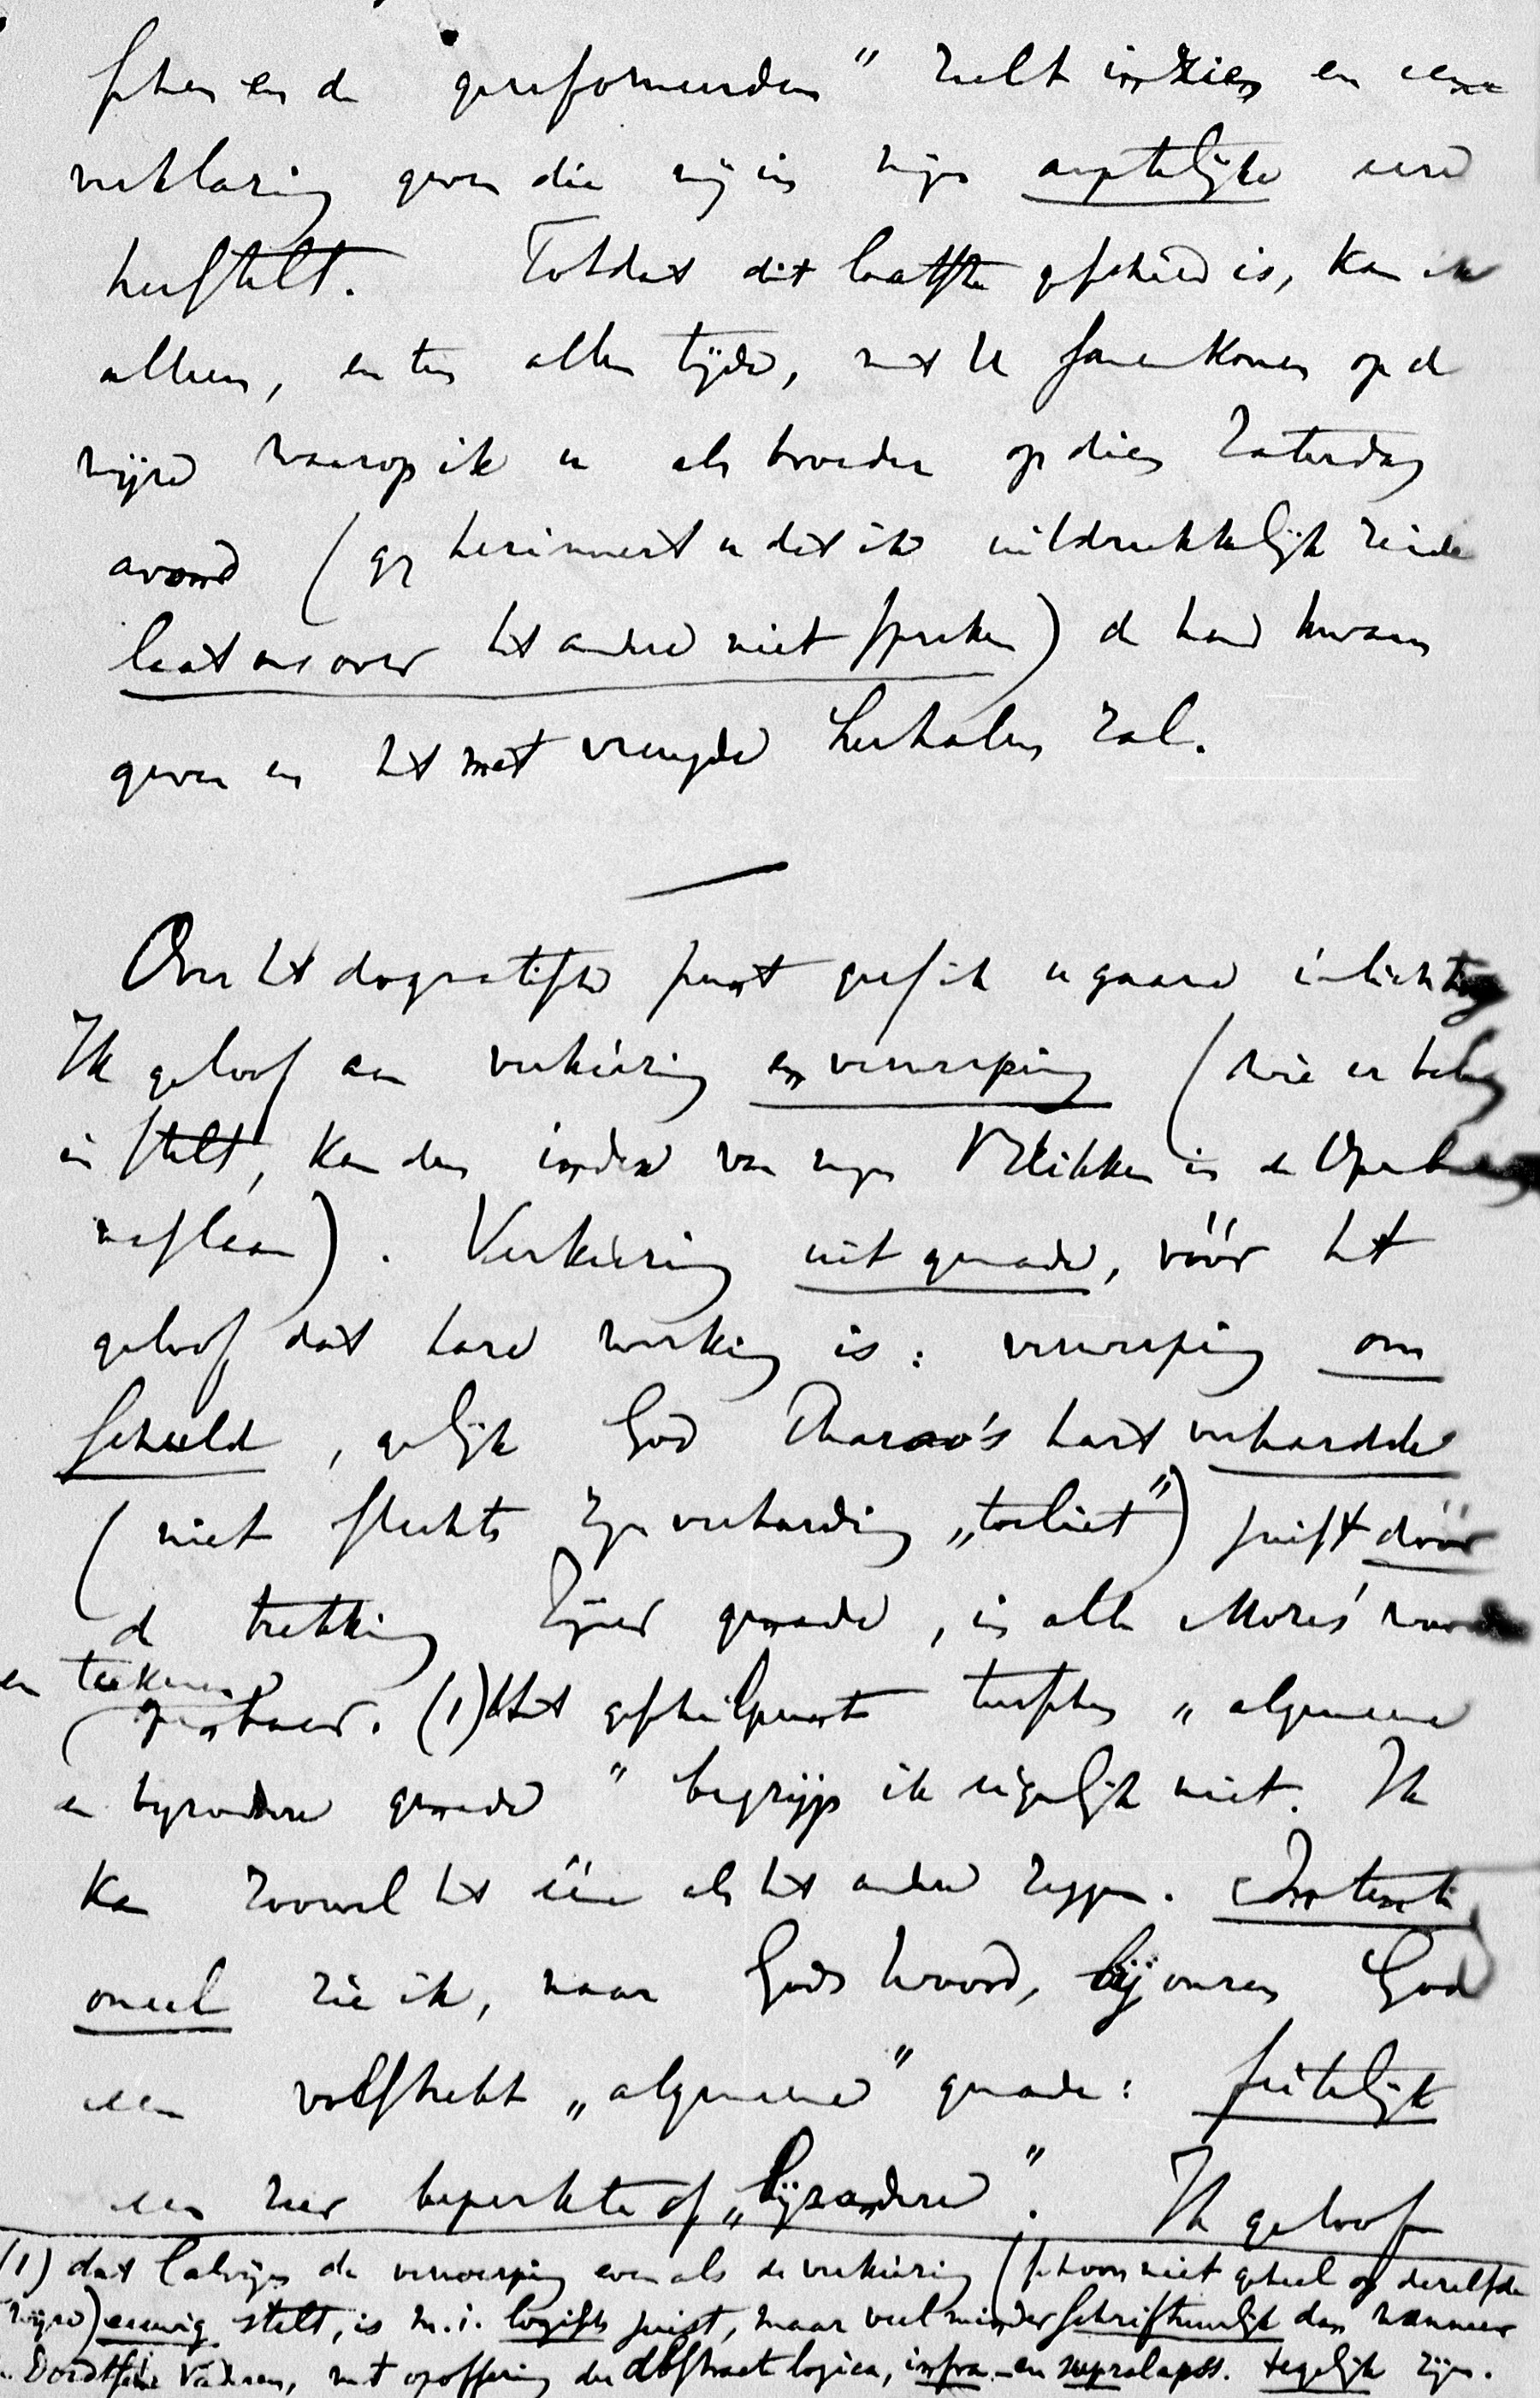 schen en de gereformeerden" zult inzien en eene
verklaring geven die mij in mijn amptelijke eere
herstelt. Totdat dit laatste geschied is, kan ik
alleen, en ten allen tijde, met U samenkomen op de
wijze waarop ik u als broeder op dien Zaterdag
avond (gij herinnert u dat ik uitdrukkelijk zeide
laat ons over het andere niet spreken) de hand kwam
geven en het met vreugde herhalen zal.
Over het dogmatische punt geef ik u gaarne inlichting
Ik geloof aan verkiezing en verwerping (wie er belang
in stelt, kan den index van mijn Blikken in de Openb.
naslaan). Verkiezing uit genade, vóór het
geloof dat hare werking is: verwerping om
schuld, gelijk God Pharao's hart verhardde
(niet slechts zijn verharding „toeliet") juist dóór
de trekking Zijner genade, in alle Mozes' woorden
en teekenen
openbaar. (1) Het geschilpunt tusschen „algemeene
en byzondere genade" begrijp ik eigenlijk niet. Ik
kan zoowel het ééne als het andere zeggen. Intenti
oneel zie ik, naar Gods Woord, bij onzen God
een volstrekt „algemeene" genade: feitelijk
een zeer beperkte of „bijzondere". Ik geloof
(1) dat Calvijn de verwerping even als de verkiezing (schoon niet geheel op dezelfde
wijze) eeuwig stelt, is m.i. logisch juist, maar veel minder schriftuurlijk dan wanneer
Dordtsche Vaderen, met opoffering der abstract logica, infra- en supralapss. tegelijk zijn.